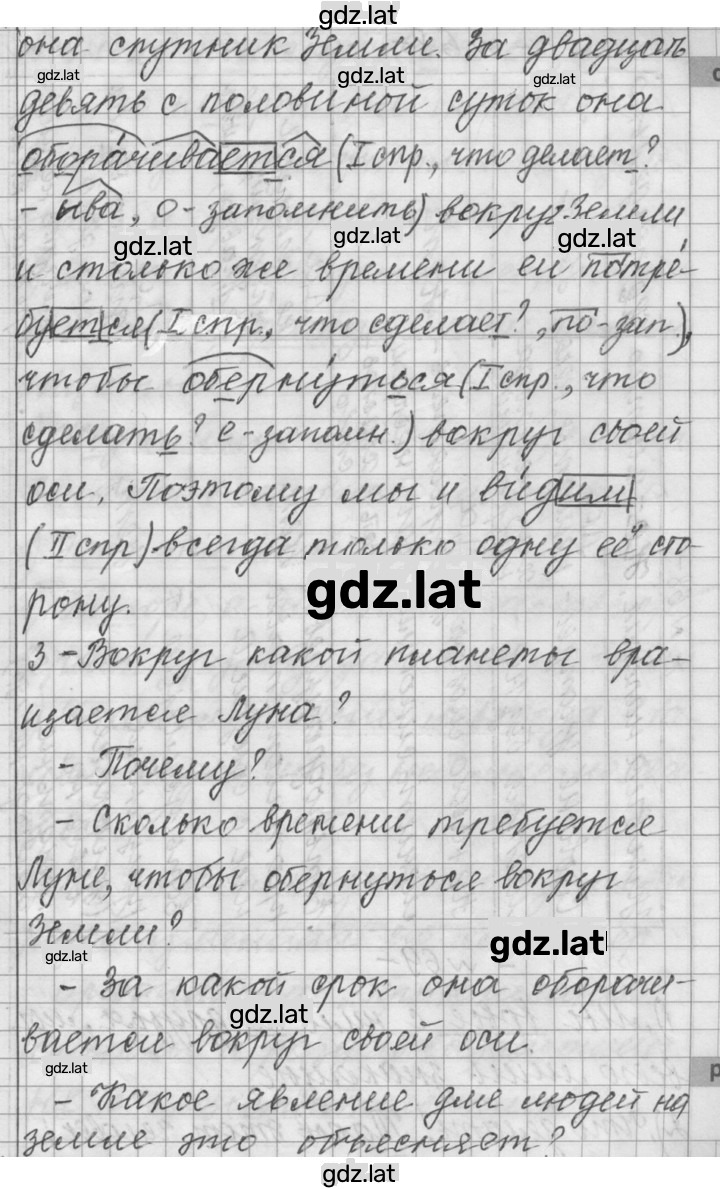 gdz.lat
она спутник Земли. За двадцать
gdz.lat gdz.lat gdz.lat
девять с половиной суток она
оборачивается (I спр., что делает?
- ыва, о - запомнить) вокруг Земли
gdz.lat gdz.lat gdz.lat
и столько же времени ей потре-
буется (I спр., что сделает?, по-зап),
чтобы обернуться (I спр., что
сделать? е - запомн.) вокруг своей
оси. Поэтому мы и видим
(II спр) всегда только одну её сто-
gdz.lat
рону.
3 - Вокруг какой планеты вра-
щается Луна?
- Почему?
- Сколько времени требуется
Луне, чтобы обернуться вокруг
Земли?
gdz.lat gdz.lat
- За какой срок она оборачи-
gdz.lat
вается вокруг своей оси.
gdz.lat
- Какое явление для людей на
земле это объясняет?
gdz.lat